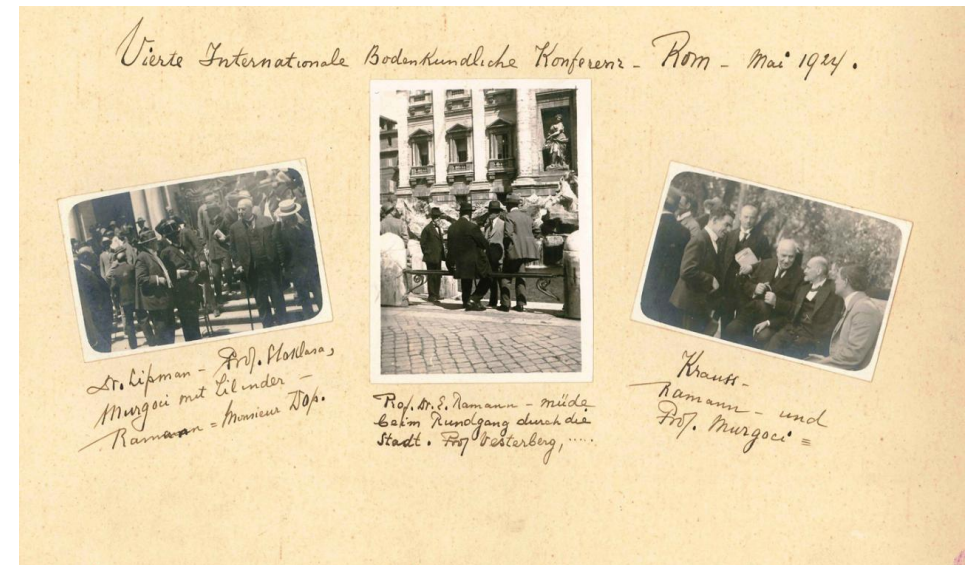 Vierte Internationale Bodenkundliche Konferenz - Rom - Mai 1924.
Dr. Lipman - Prof. Stoklasa,
Murgoci mit Zilinder -
Ramann = Monsieur Dop.
Prof. Dr. E. Ramann - müde
beim Rundgang durch die
Stadt. Prof Vesterberg, .....
Krauss -
Ramann - und
Prof. Murgoci =